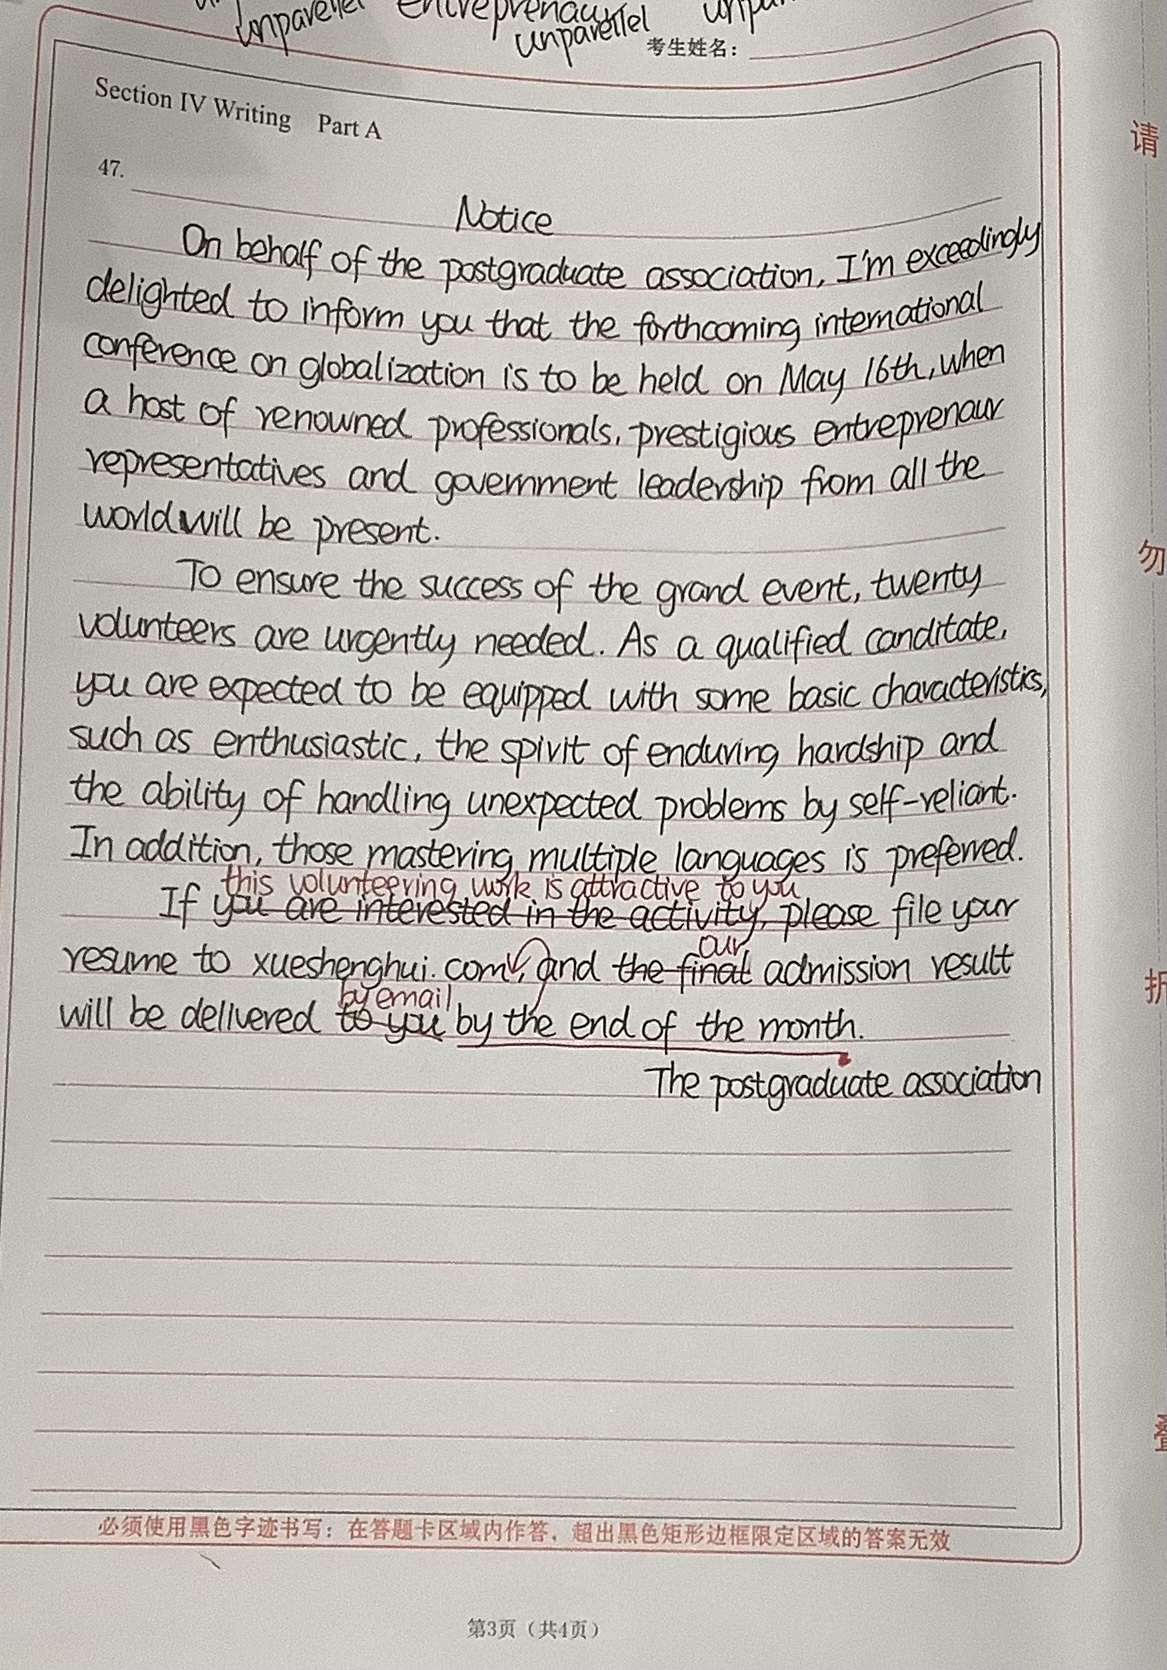 unparellel entreprenaur
unparellel
考生姓名：
Section IV Writing Part A
47.
Notice
On behalf of the postgraduate association, I'm exceedingly
delighted to inform you that the forthcoming international
conference on globalization is to be held on May 16th, when
a host of renowned professionals, prestigious entreprenaur
representatives and government leadership from all the
world will be present.
To ensure the success of the grand event, twenty
volunteers are urgently needed. As a qualified canditate,
you are expected to be equipped with some basic characteristics,
such as enthusiastic, the spirit of enduring hardship and
the ability of handling unexpected problems by self-reliant.
In addition, those mastering multiple languages is preferred.
this volunteering work is attractive to you
If you are interested in the activity, please file your
our
resume to xueshenghui.com, and the final admission result
by email
will be delivered to you by the end of the month.
The postgraduate association
必须使用黑色字迹书写；在答题卡区域内作答，超出黑色矩形边框限定区域的答案无效
第3页（共4页）
请
勿
折
叠